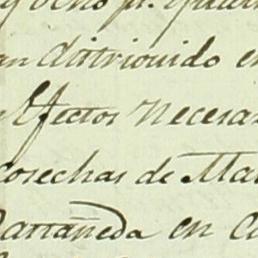 y ocho p.
an distriouido en
Efectos Necesa
cosechas de Ma
Castañeda en C